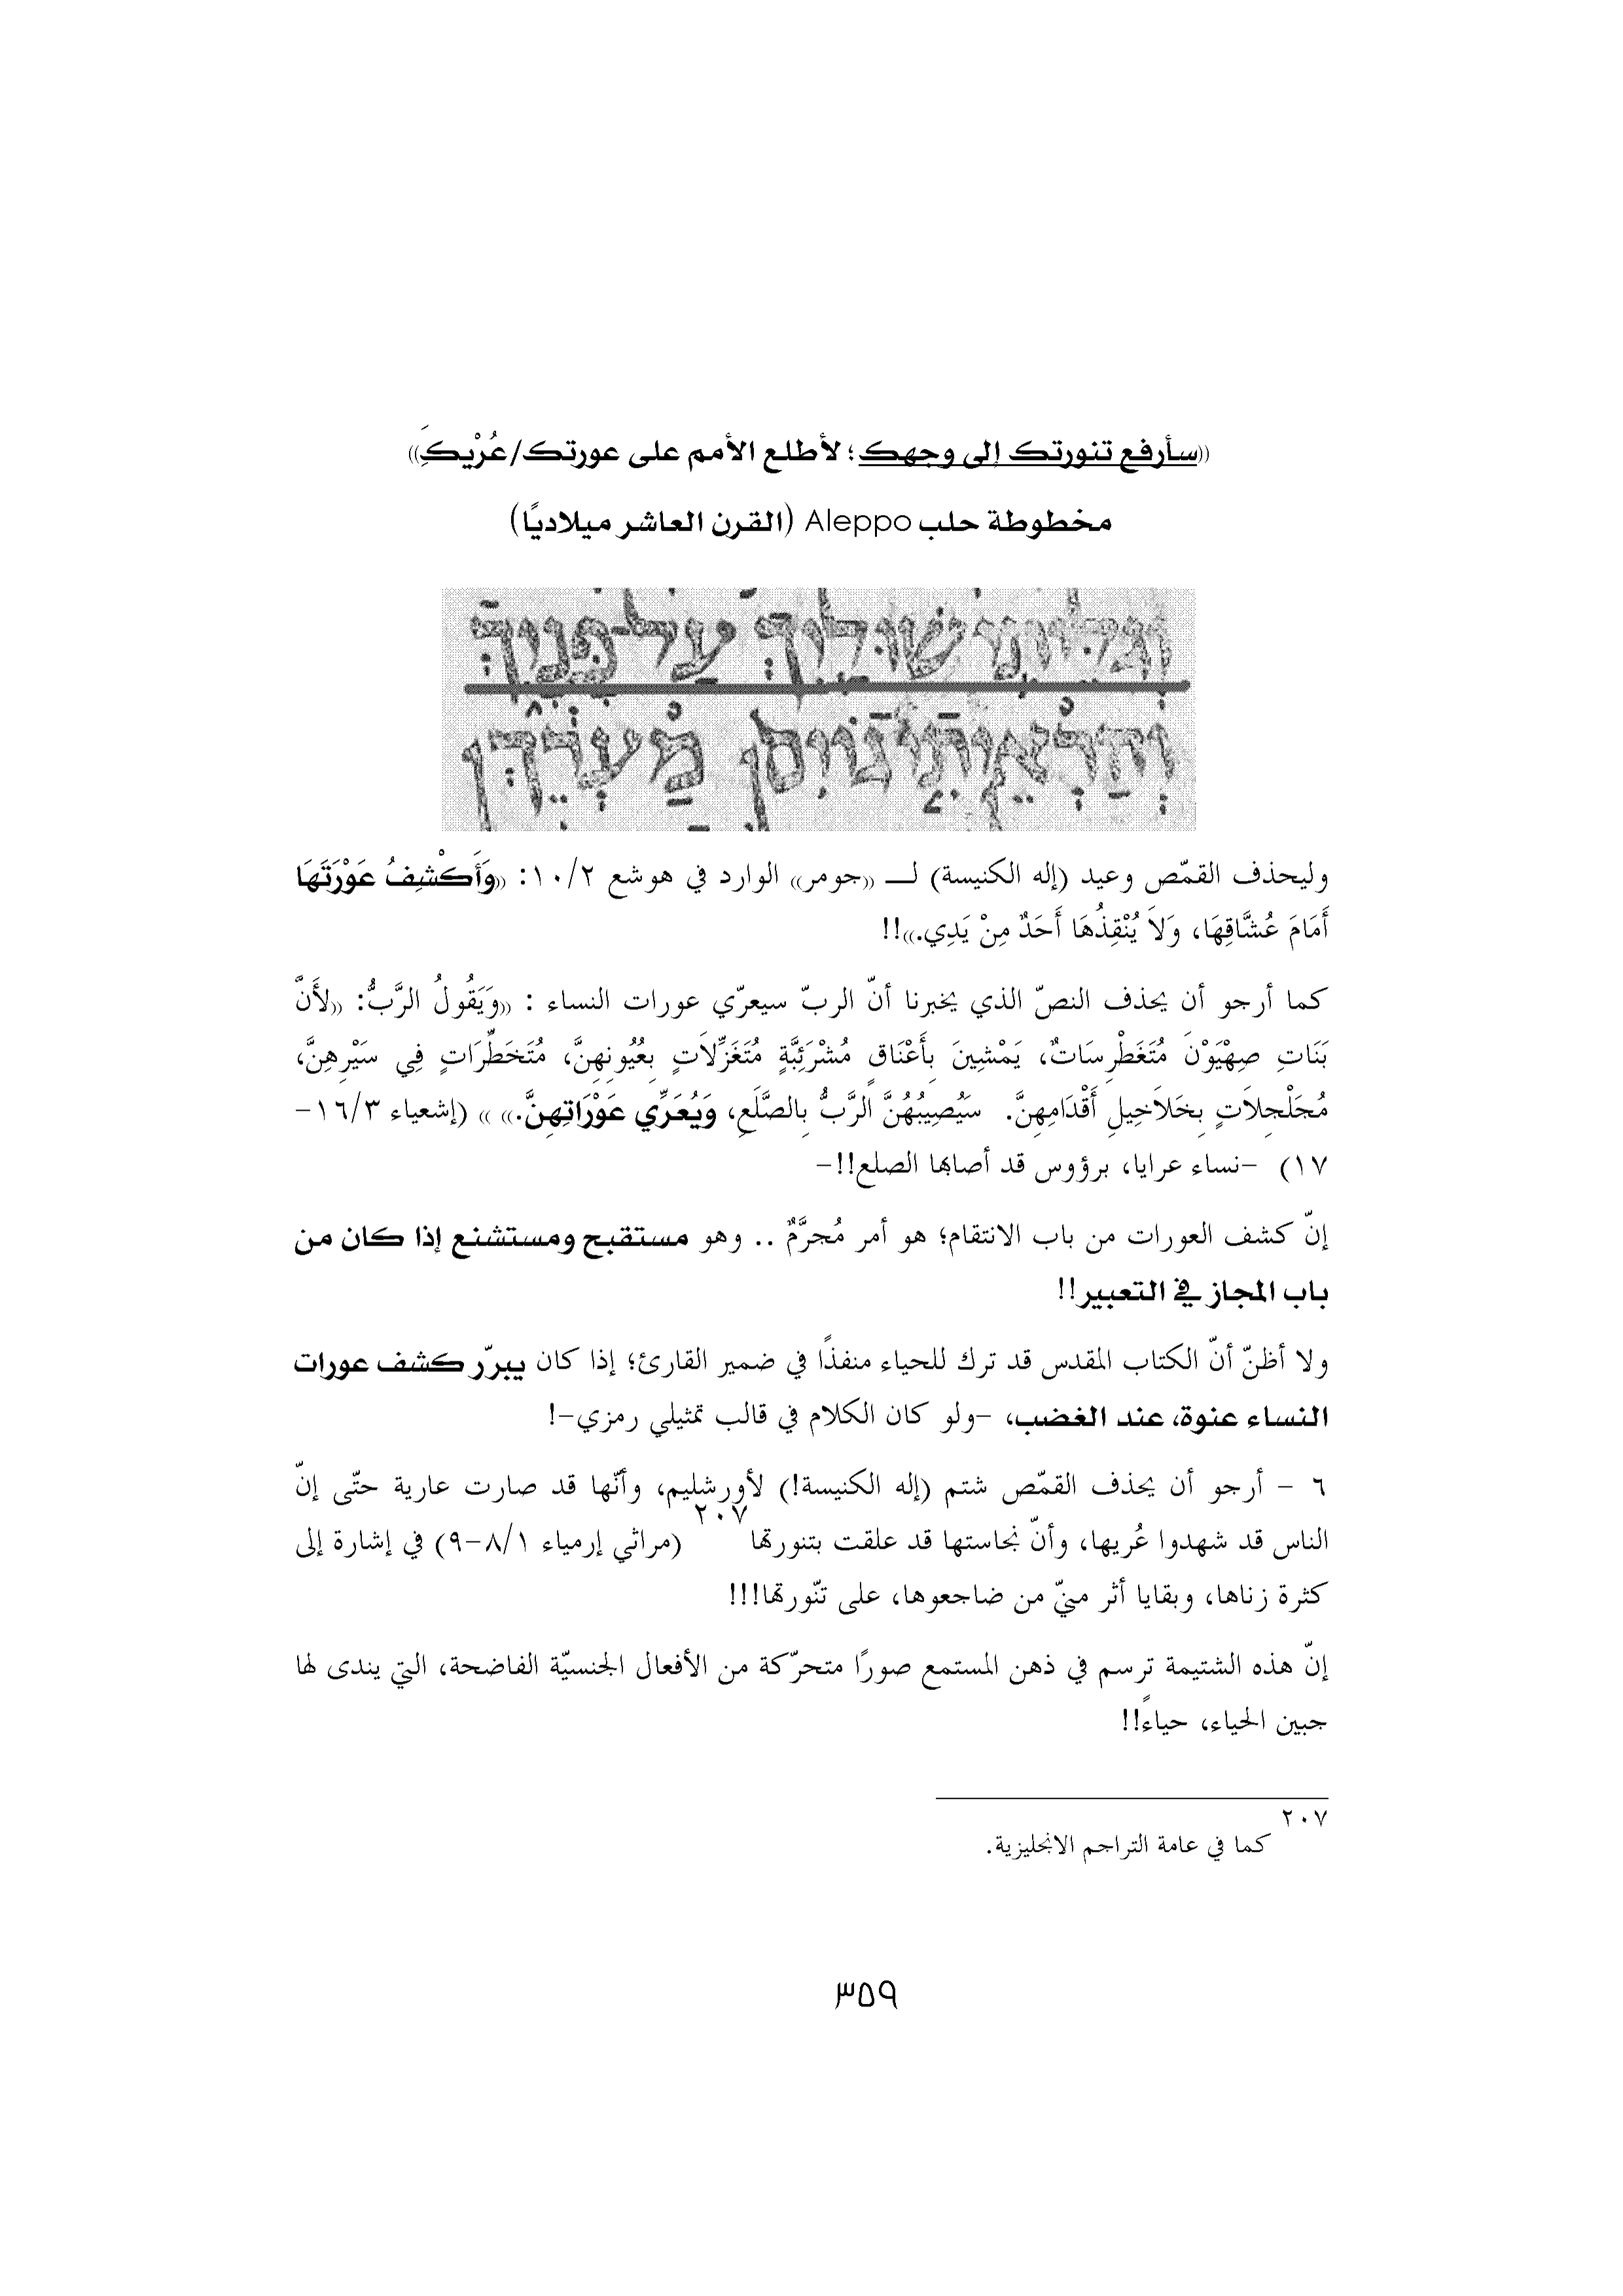 ((سأرفع تنورتك إلى وجهك؛ لأطلع الأمم على عورتك/عُرْيكِ))
مخطوطة حلب Aleppo (القرن العاشر ميلاديًا)
וגליתי שוליך על פניך
והראיתי גוים מערך
وليحذف القمّص وعيد (إله الكنيسة) لـــ ((جومر)) الوارد في هوشع ١٠/٢: ((وَأَكْشِفُ عَوْرَتَهَا
أَمَامَ عُشَّاقِهَا، وَلاَ يُنْقِذُهَا أَحَدٌ مِنْ يَدِي.))!!
كما أرجو أن يحذف النصّ الذي يخبرنا أنّ الربّ سيعرّي عورات النساء : ((وَيَقُولُ الرَّبُّ: ((لأَنَّ
بَنَاتِ صِهْيَوْنَ مُتَغَطْرِسَاتٌ، يَمْشِينَ بِأَعْنَاقٍ مُشْرَئِبَّةٍ مُتَغَزِّلاَتٍ بِعُيُونِهِنَّ، مُتَخَطِّرَاتٍ فِي سَيْرِهِنَّ،
مُجَلْجِلاَتٍ بِخَلاَخِيلِ أَقْدَامِهِنَّ. سَيُصِيبُهُنَّ الرَّبُّ بِالصَّلَعِ، وَيُعَرِّي عَوْرَاتِهِنَّ.)) )) (إشعياء ١٦/٣-
١٧) -نساء عرايا، برؤوس قد أصابها الصلع!!-
إنّ كشف العورات من باب الانتقام؛ هو أمر مُجرَّمٌ .. وهو مستقبح ومستشنع إذا كان من
باب المجاز في التعبير!!
ولا أظنّ أنّ الكتاب المقدس قد ترك للحياء منفذًا في ضمير القارئ؛ إذا كان يبرّر كشف عورات
النساء عنوة، عند الغضب، -ولو كان الكلام في قالب تمثيلي رمزي-!
٦ - أرجو أن يحذف القمّص شتم (إله الكنيسة!) لأورشليم، وأنّها قد صارت عارية حتّى إنّ
الناس قد شهدوا عُريها، وأنّ نجاستها قد علقت بتنورتها٢٠٧ (مراثي إرمياء ٨/١-٩) في إشارة إلى
كثرة زناها، وبقايا أثر منيّ من ضاجعوها، على تنّورتها!!!
إنّ هذه الشتيمة ترسم في ذهن المستمع صورًا متحرّكة من الأفعال الجنسيّة الفاضحة، التي يندى لها
جبين الحياء، حياءً!!
٢٠٧
كما في عامة التراجم الانجليزية.
٣٥٩